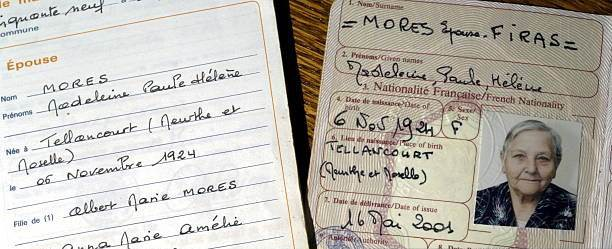 inquante neuf
commune
Épouse
Nom MORES
Prénoms Madeleine Paule Hélène
Née à Tellancourt (Meurthe et
Moselle)
le 06 Novembre 1924
Fille de (1) Albert Marie MORES
Anna Marie Amélie
1. Nom/Surname
=MORES Epouse. FIRAS=
2. Prénoms/Given names
Madeleine Paule, Hélène
3. Nationalité Française/French Nationality
4. Date de naissance/Date of birth
5. Sexe/Sex
6 NOV 1924 F
6. Lieu de naissance/Place of birth
TELLANCOURT
(Meurthe et Moselle)
7. Date de délivrance/Date of issue
16 Mai 2001
Autorité/Authority